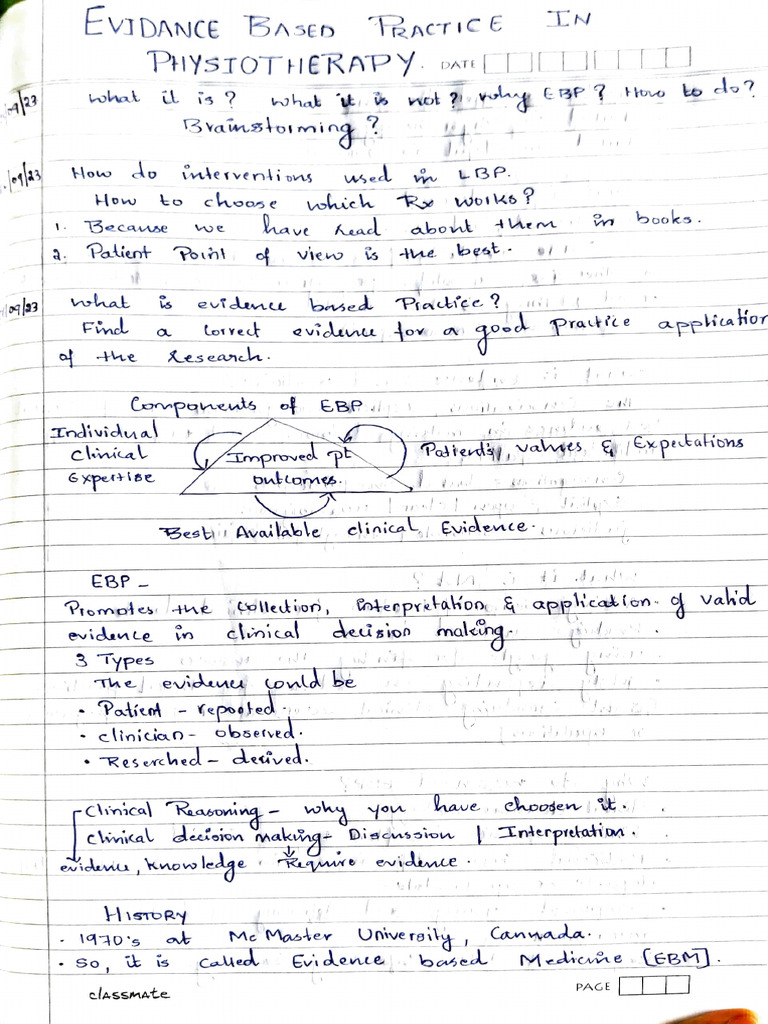 EVIDANCE BASED PRACTICE IN
PHYSIOTHERAPY. DATE
09/23 What it is? What it is not? Why EBP? How to do?
Brainstorming?
09/23 How do interventions used in LBP.
How to choose which Rx works?
1. Because we have read about them in books.
2. Patient Point of view is the best.
09/23 What is evidence based Practice?
Find a correct evidence for a good practice application
of the research.
Components of EBP
Individual
Clinical
Expertise
Improved pt
outcomes.
Patient's values & Expectations
Best Available clinical Evidence.
EBP -
Promotes the collection, interpretation & application of valid
evidence in clinical decision making.
3 Types
The evidence could be
• Patient - reported.
• clinician - observed.
• Reserched - derived.
Clinical Reasoning - why you have choosen it.
clinical decision making - Discussion | Interpretation.
evidence, knowledge Require evidence.
HISTORY
• 1970's at McMaster University, Cannada.
• So, it is called Evidence based Medicine [EBM].
classmate PAGE